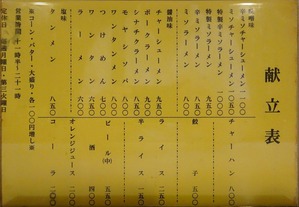 献立表
味噌味
辛ミソチャーシューメン 一一〇〇
ミソチャーシューメン 一〇五〇
特製辛ミソラーメン 一〇〇〇
特製ミソラーメン 九五〇
辛ミソラーメン 九〇〇
ミソラーメン 八五〇
醤油味
チャーシューメン 九五〇
ポークラーメン 九五〇
シナチクラーメン 八五〇
モヤシソバ 八五〇
ワンタンメン 八五〇
つけめん 七〇〇
ラーメン 六五〇
ワンタン 六〇〇
塩味
タンメン 八五〇
※コーン・バター・大盛り・各一〇〇円増し※
営業時間 十一時半〜二十一時
定休日 毎週月曜日・第三火曜日
チャーハン 八〇〇
餃子 五〇〇
ライス 二五〇
半ライス 一五〇
ビール(中) 五五〇
酒 四〇〇
オレンジジュース 二〇〇
コーラ 二〇〇